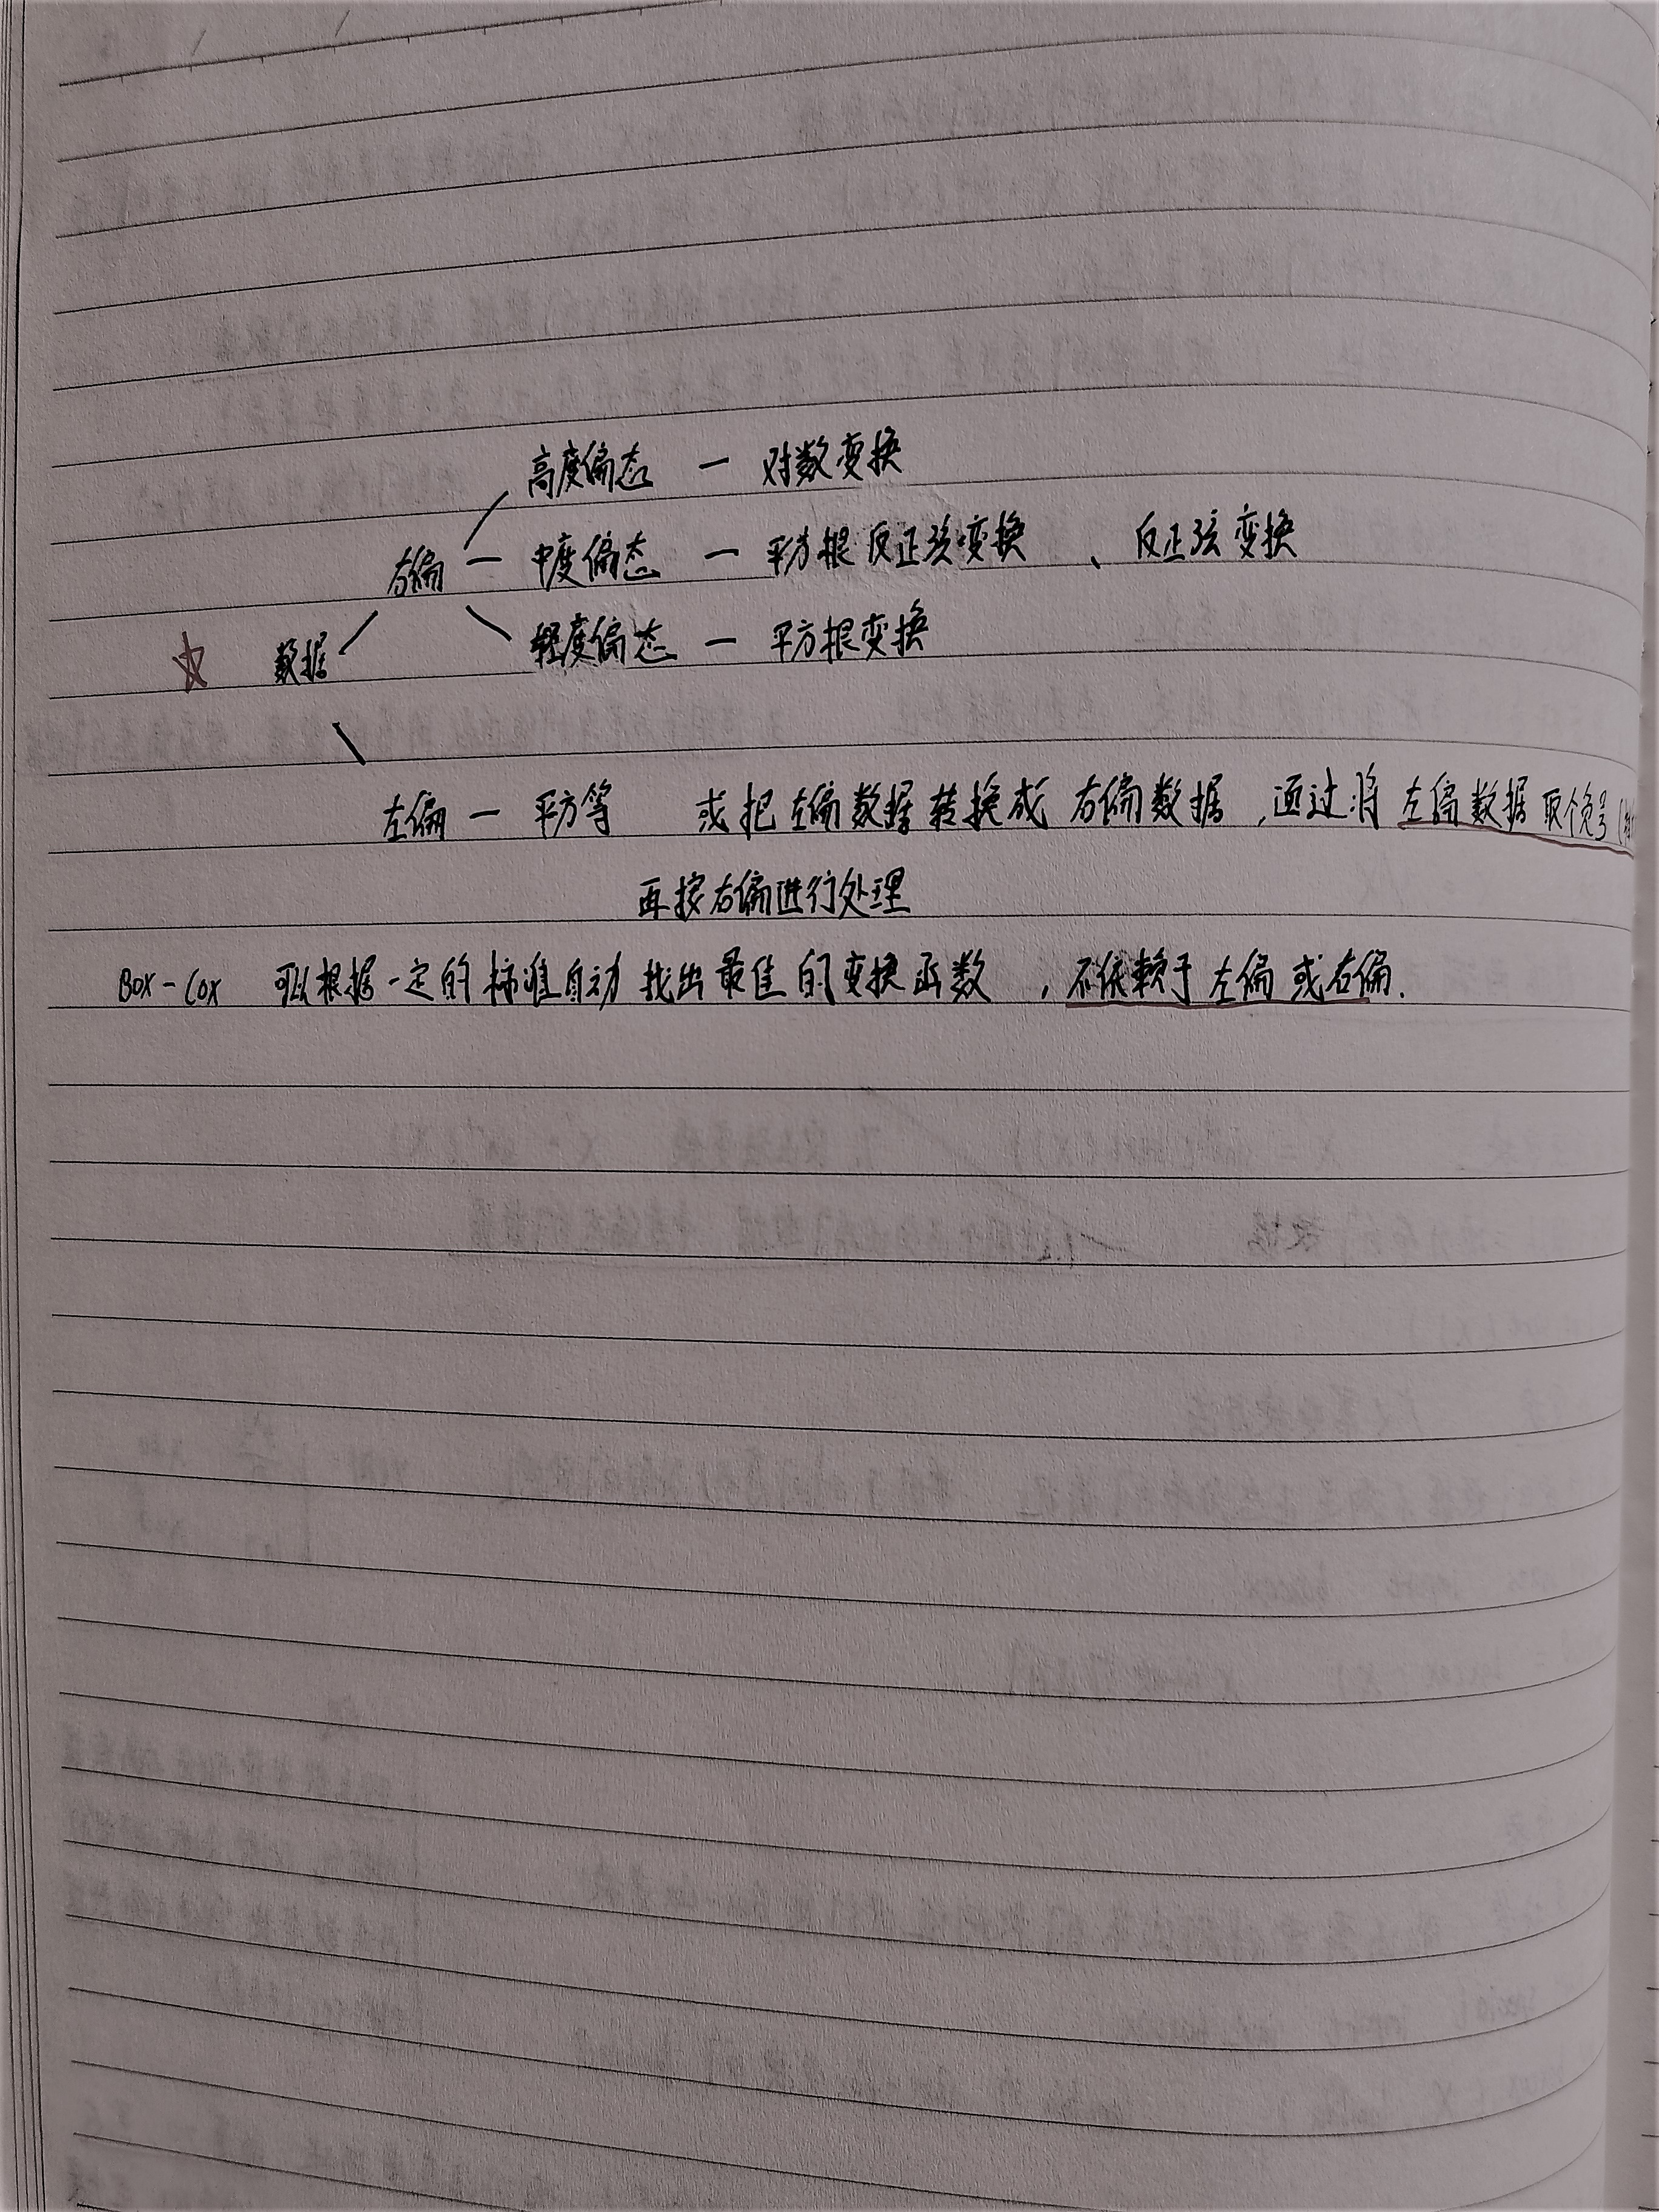 高度偏态 — 对数变换
右偏 — 中度偏态 — 平方根反正弦变换 、反正弦变换
轻度偏态 — 平方根变换
☆ 数据
左偏 — 平方等 或把左偏数据转换成右偏数据，通过将左偏数据取个负号(
再按右偏进行处理
Box-Cox 可以根据一定的标准自动找出最佳的变换函数，不依赖于左偏或右偏.